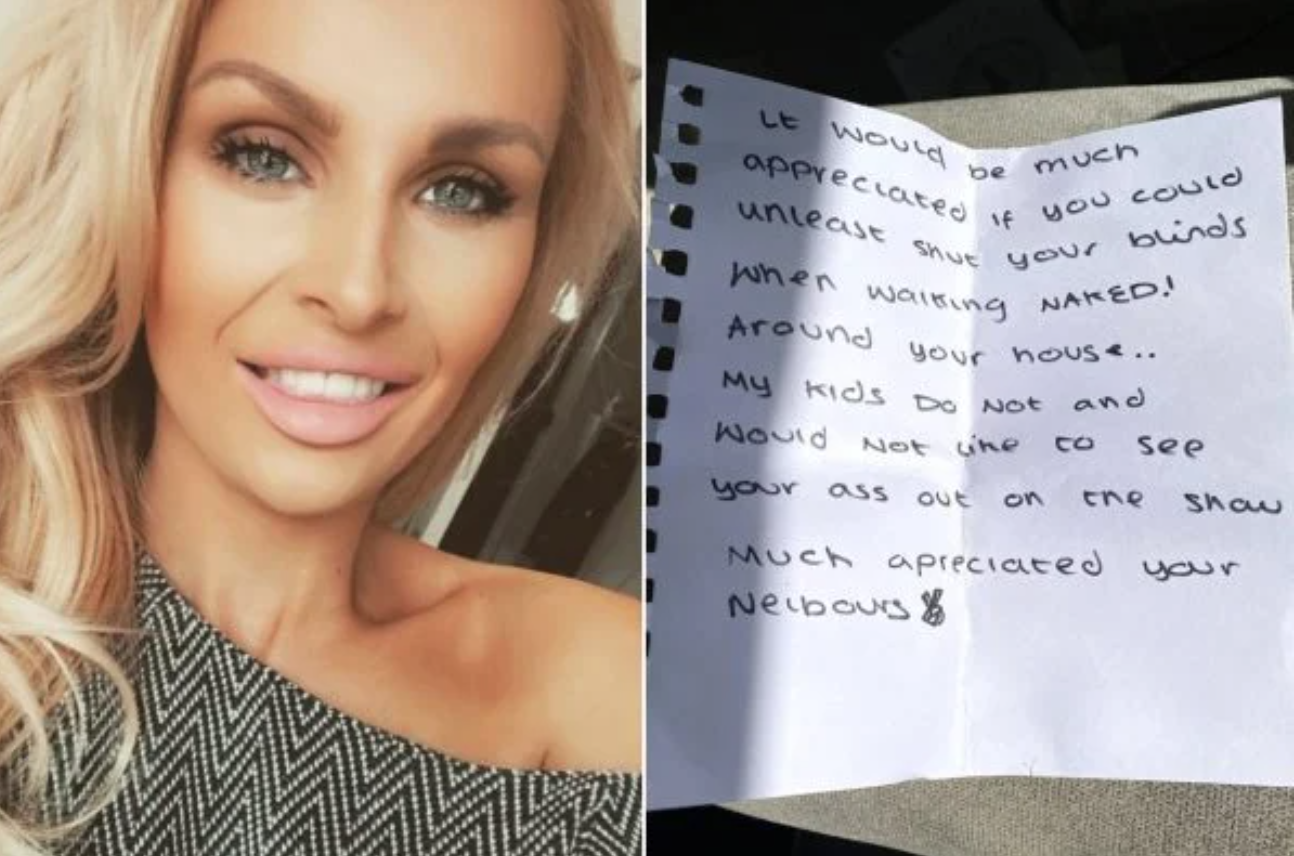 It would be much
appreciated if you could
unleast shut your blinds
when walking NAKED!
Around your house..
My kids Do Not and
would Not like to see
your ass out on the show
Much apreciated your
Neibours